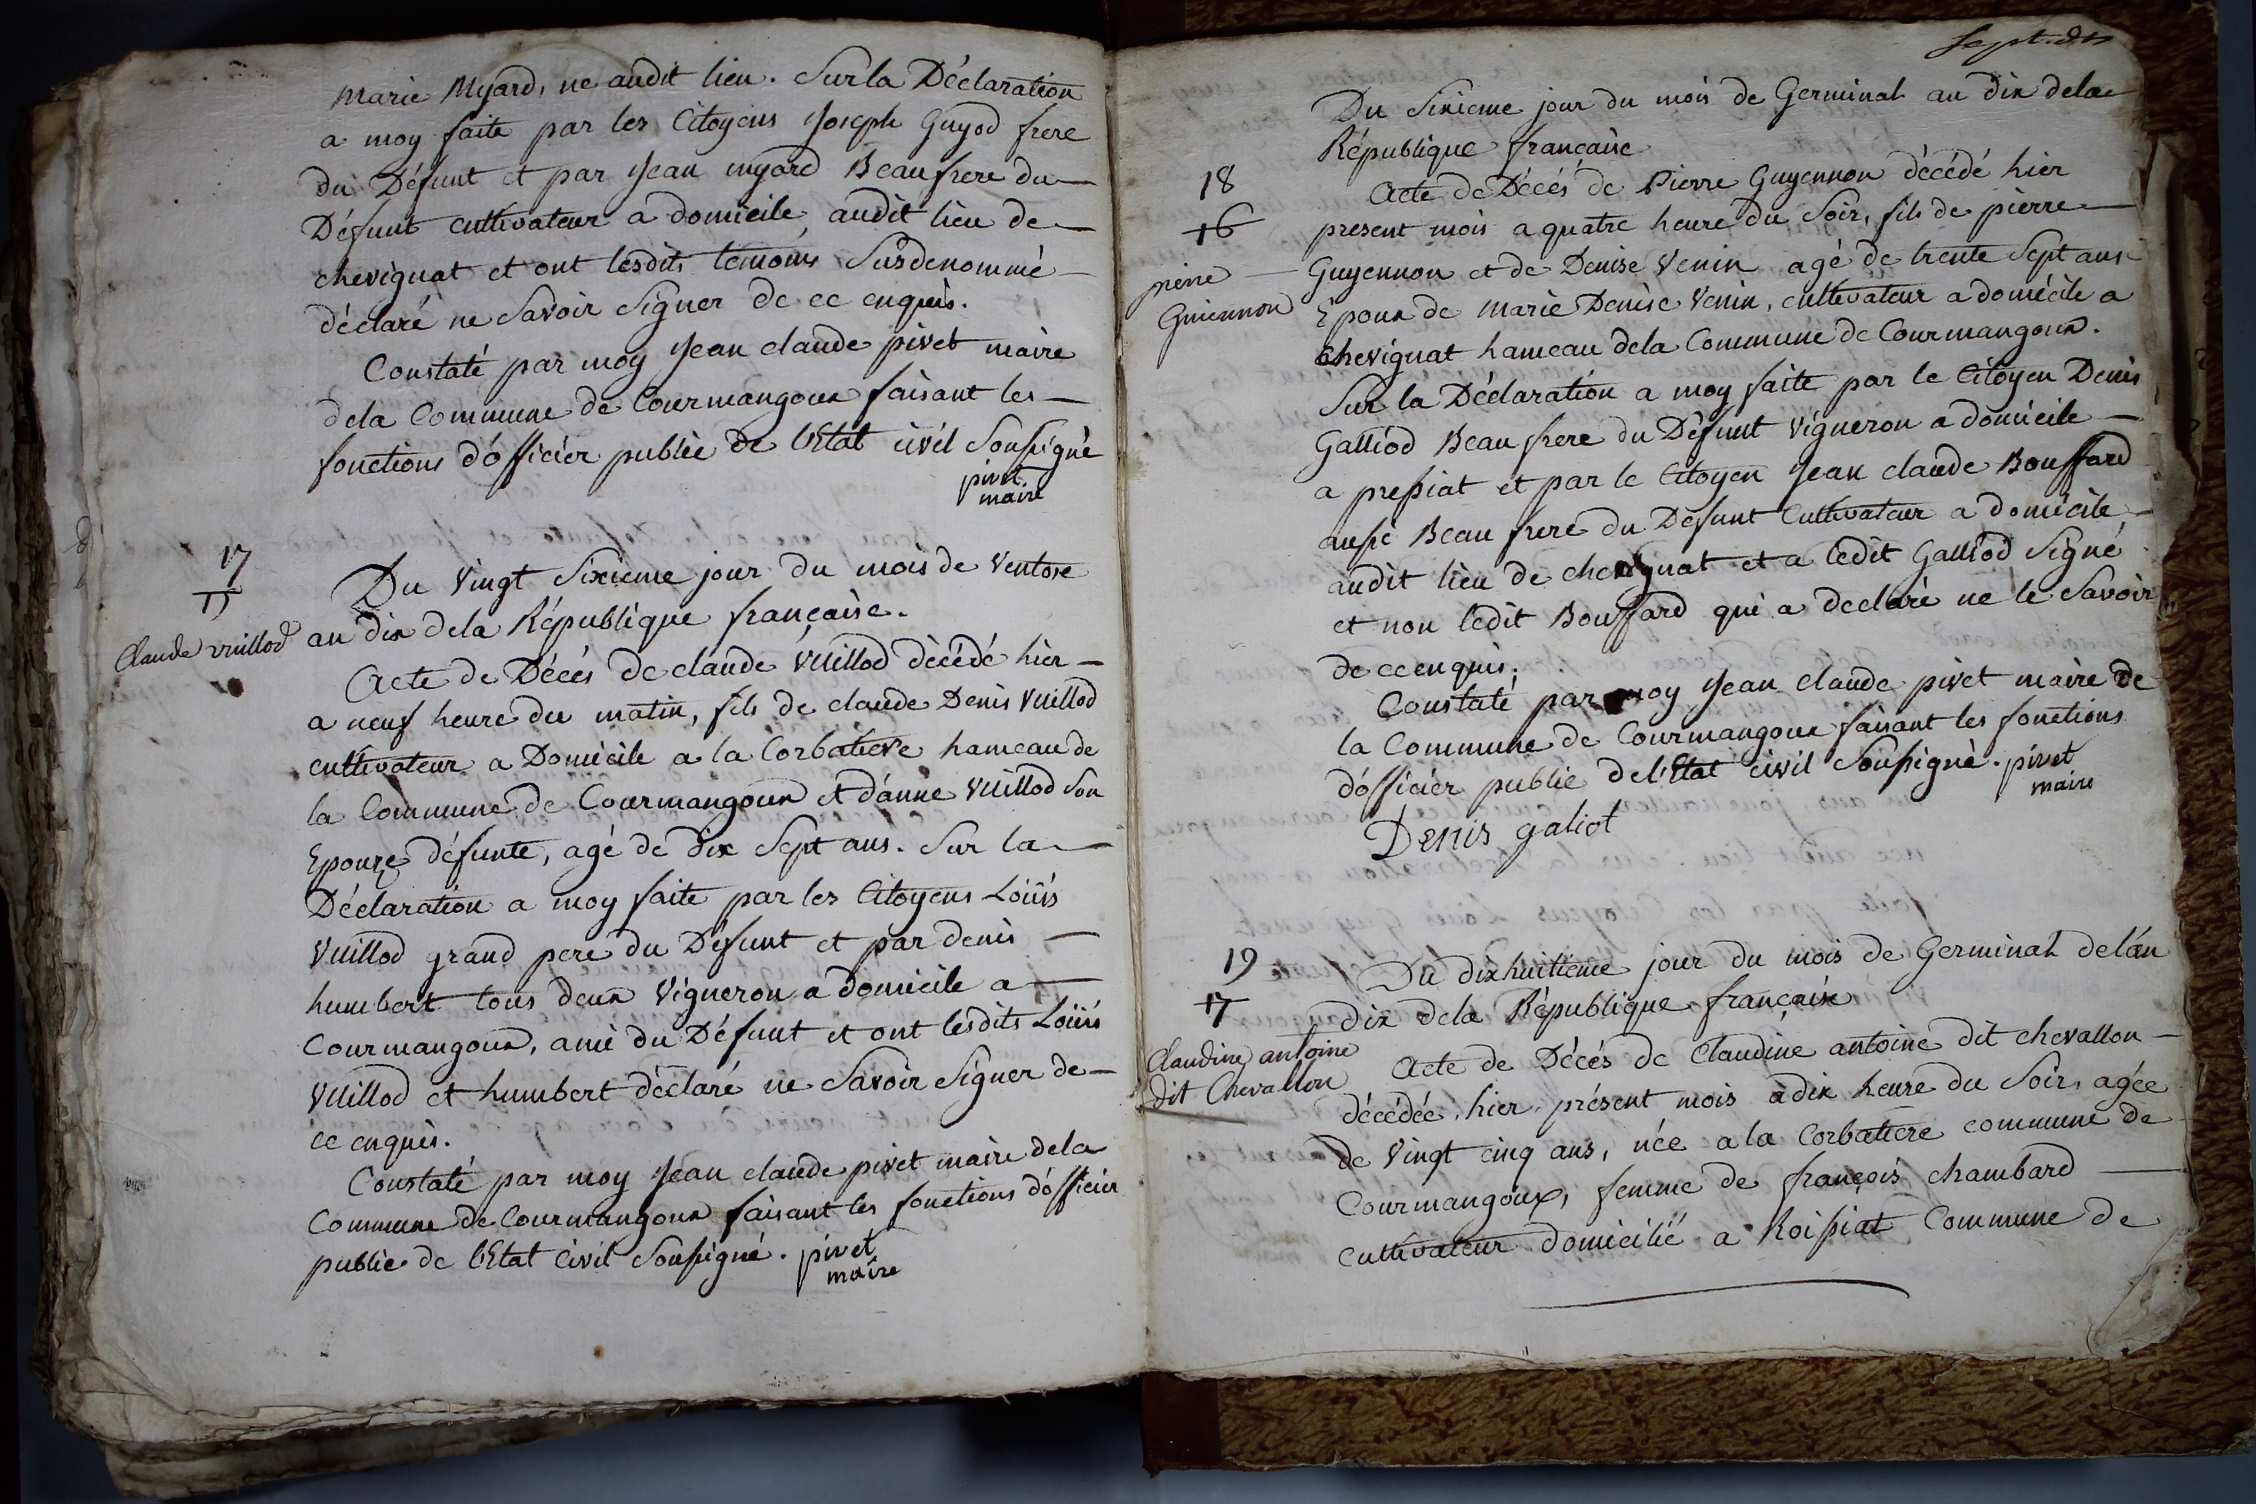 Marie Myard, ne audit lieu. Sur la Déclaration
a moy faite par les Citoyens Joseph Guyod frere
du Défunt et par Jean myard Beaufrere du
Défunt cultivateur a domicile audit lieu de
chevignat et ont lesdits témoins Susdenommé
déclaré ne Savoir Signer de ce enquis.
Constaté par moy Jean claude pivet maire
dela Commune de Courmangoux faisant les
fonctions d'officier public de l'Etat civil Soussigné
pivet
maire
17
15
Claude vuillod
Du Vingt Sixieme jour du mois de Ventose
an dix dela République française.
Acte de Décés de claude Vuillod décédé hier
a neuf heure du matin, fils de claude Denis Vuillod
cultivateur a Domicile a la Corbatiere hameau de
la Commune de Courmangoux et d'anne Vuillod Son
Epouze défunte, agé de dix Sept ans. Sur la
Déclaration a moy faite par les Citoyens Loüis
Vuillod grand pere du Défunt et par denis
humbert tous deux Vigneron a domicile a
Courmangoux, ami du Défunt et ont lesdits Loüis
Vuillod et humbert déclaré ne Savoir Signer de
ce enquis.
Constaté par moy Jean claude pivet maire dela
Commune de Courmangoux faisant les fonctions d'officier
public de l'Etat Civil Soussigné. pivet
maire
Sept
Du Sixieme jour du mois de Germinal an dix dela
République française
18
16
pierre
Guiennon
Acte de Décés de Pierre Guyennon décédé hier
present mois a quatre heure du Soir, fils de pierre
Guyennon et de Denise Venin agé de trente Sept ans
Epoux de Marie Denise Venin, cultivateur a domicile a
Chevignat hameau dela Commune de Courmangoux.
Sur la Déclaration a moy faite par le Citoyen Denis
Galliod Beau frere du Défunt Vigneron a domicile
a pressiat et par le Citoyen Jean claude Bouffard
aussi Beau frere du Défunt Cultivateur a domicile
audit lieu de chevignat et a ledit Galliod Signé
et non ledit Bouffard qui a declaré ne le Savoir
de ce enquis.
Constaté par moy Jean claude pivet maire de
la Commune de Courmangoux faisant les fonctions
d'officier public de l'Etat civil Soussigné. pivet
maire
Denis galiot
19
17
Claudine antoine
dit Chevallon
Du dixhuitieme jour du mois de Germinal de l'an
dix dela République française
Acte de Décés de Claudine antoine dit chevallon
décédée hier présent mois a dix heure du Soir, agée
de Vingt cinq ans, née a la Corbatiere commune de
Courmangoux, femme de françois chambard
cultivateur domicilié a Roissiat Commune de